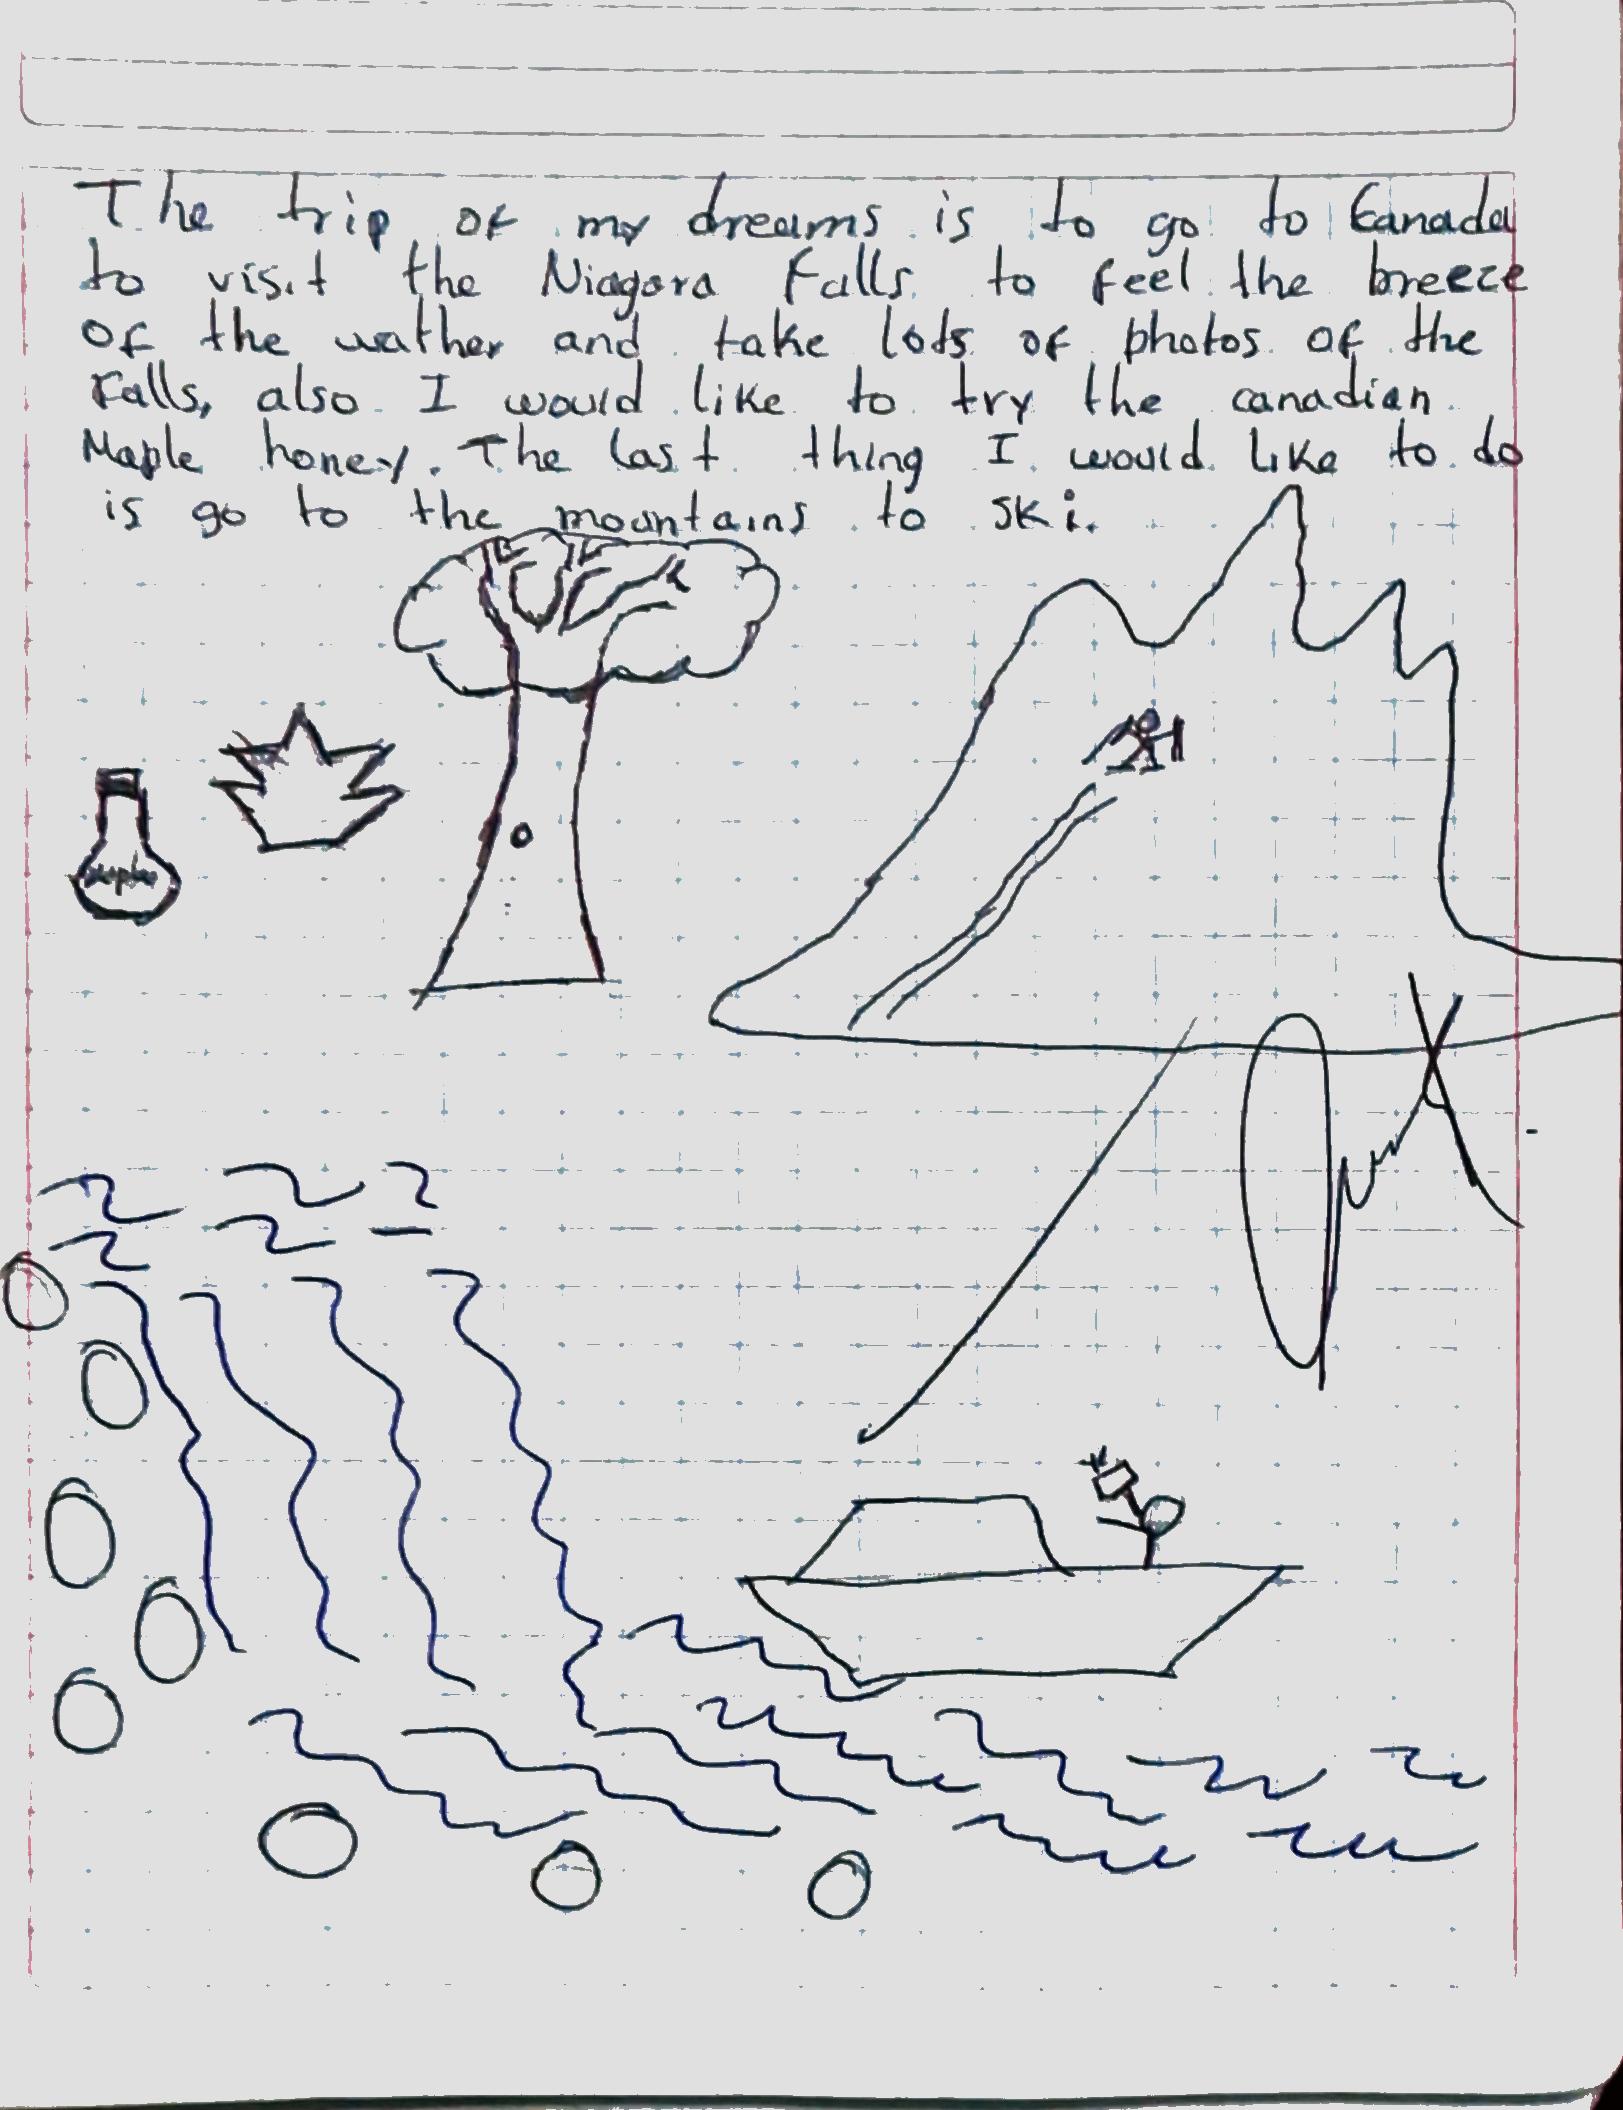 The trip of my dreams is to go to Canada
to visit the Niagara Falls to feel the breeze
of the wather and take lots of photos of the
Falls, also I would like to try the canadian
Maple honey. The last thing I would like to do
is go to the mountains to ski.